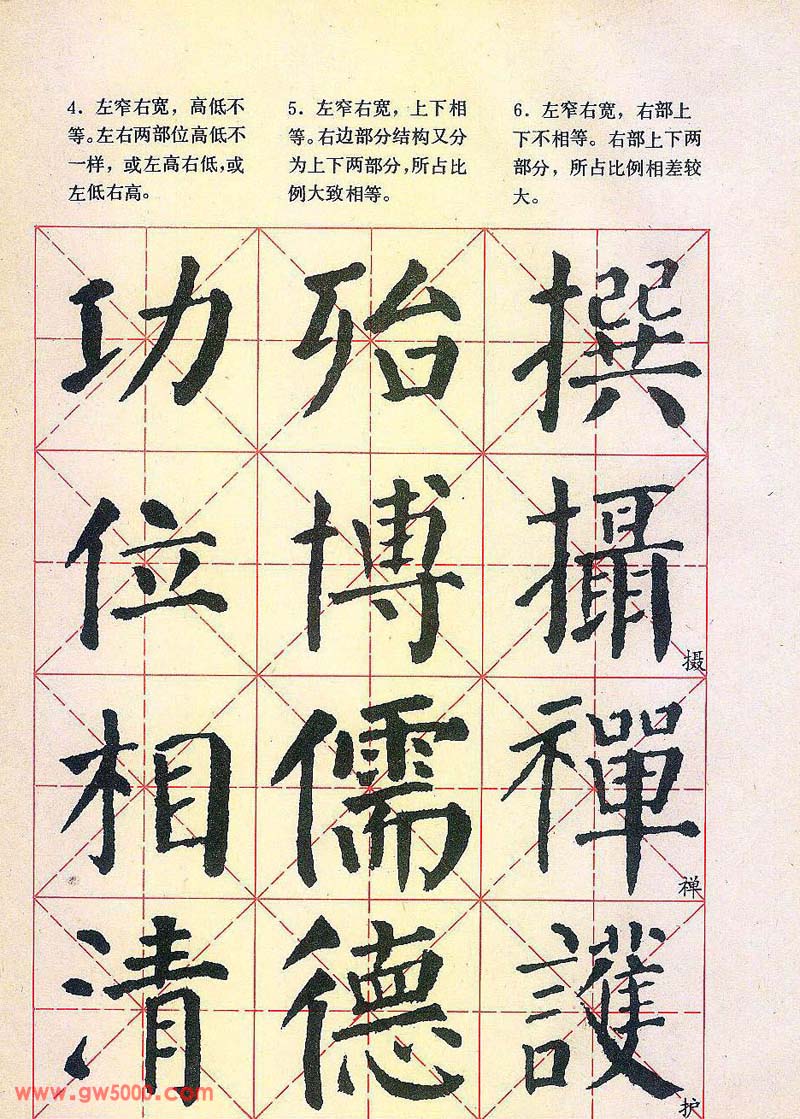 4．左窄右宽，高低不
等。左右两部位高低不
一样，或左高右低，或
左低右高。
5．左窄右宽，上下相
等。右边部分结构又分
为上下两部分，所占比
例大致相等。
6．左窄右宽，右部上
下不相等。右部上下两
部分，所占比例相差较
大。
功 殆 撰
位 博 攝
摄
相 儒 禪
禅
清 德 護
护
www.gw5000.com